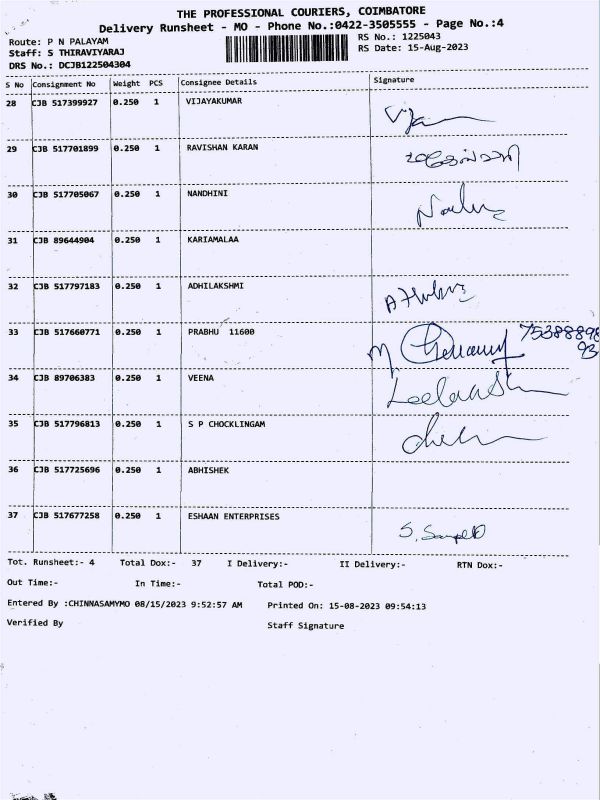 THE PROFESSIONAL COURIERS, COIMBATORE
Delivery Runsheet - MO - Phone No.:0422-3505555 - Page No.:4
Route: P N PALAYAM
RS No.: 1225043
Staff: S THIRAVIYARAJ
RS Date: 15-Aug-2023
DRS No.: DCJB122504304
S No Consignment No Weight PCS Consignee Details Signature
28 CJB 517399927 0.250 1 VIJAYAKUMAR
29 CJB 517701899 0.250 1 RAVISHAN KARAN
30 CJB 517705067 0.250 1 NANDHINI
31 CJB 89644904 0.250 1 KARIAMALAA
32 CJB 517797183 0.250 1 ADHILAKSHMI
33 CJB 517660771 0.250 1 PRABHU 11600 7538889893
34 CJB 89706383 0.250 1 VEENA
35 CJB 517796813 0.250 1 S P CHOCKLINGAM
36 CJB 517725696 0.250 1 ABHISHEK
37 CJB 517677258 0.250 1 ESHAAN ENTERPRISES
Tot. Runsheet:- 4 Total Dox:- 37 I Delivery:- II Delivery:- RTN Dox:-
Out Time:- In Time:- Total POD:-
Entered By :CHINNASAMYMO 08/15/2023 9:52:57 AM Printed On: 15-08-2023 09:54:13
Verified By Staff Signature